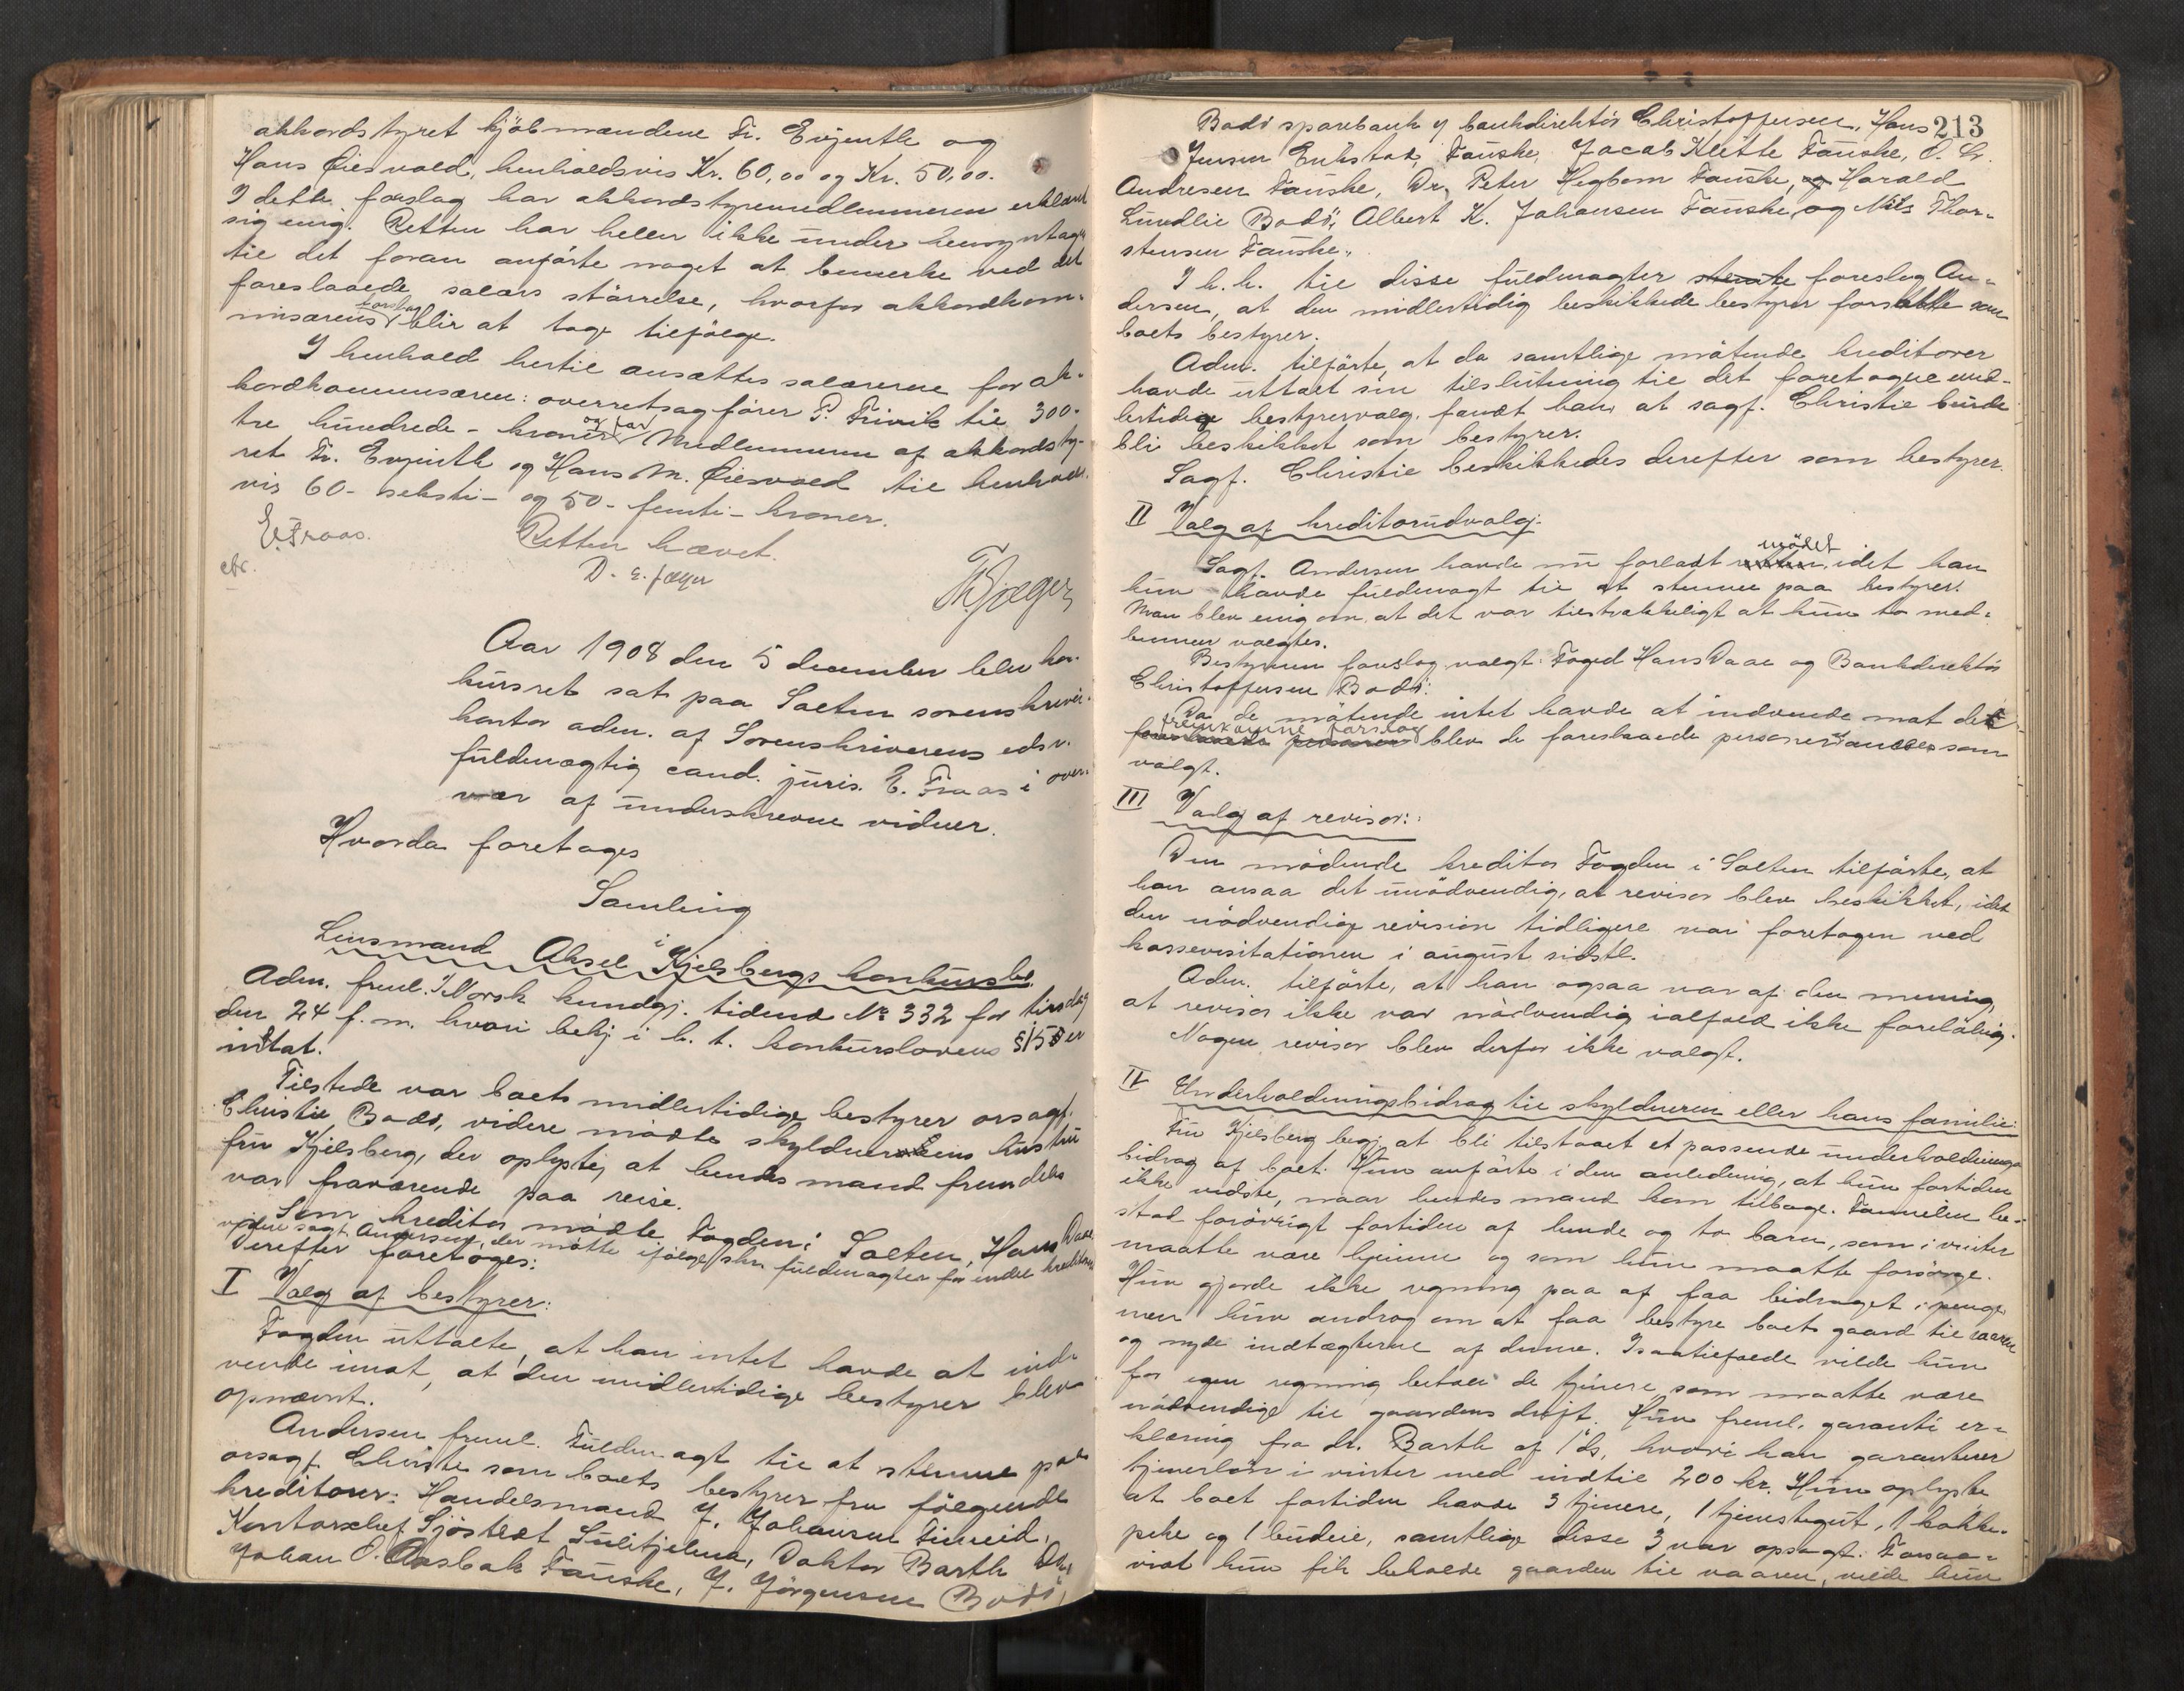 akkordstyret kjøbmændene Fr. Evjenth og
Hans Øiesvold, henholdsvis Kr. 60,00 og Kr. 50,00.
I dette forslag har akkordstyremedlemmerne erklært
sig enig. Retten har heller ikke under hensyntagen
til det foran anførte noget at bemerke ved det
foreslaaede salærs størrelse, hvorfor akkordkom-
misærens forslag blir at tage tilfølge.
I henhold hertil ansættes salærerne for ak-
kordkommisæren: overretsagfører P. Trivik til 300-
tre hundrede - kroner og for Medlemmerne af akkordsty-
ret Fr. Evjenth og Hans M. Øiesvold til henholds-
vis 60 - seksti - og 50 - femti - kroner.
Retten hævet.
E. Fraas. D. E. Jæger
ebr. Jæger
Aar 1908 den 5 december blev kon-
kursret sat paa Salten sorenskriver-
kontor adm. af Sorenskriverens edsv.
fuldmægtig cand. juris. E. Fraas i over-
vær af underskrevne vidner.
Hvorda foretages
Samling
i
Lensmand Aksel Kjelsbergs konkursbo.
Adm. freml. Norsk kundgj. tidende No 332 for tirsdag
den 24 f. m. hvori bekj. i h. t. konkurslovens § 15 er
inntat.
Tilstede var boets midlertidige bestyrer orsagf.
Christie Bodø, videre mødte skyldnerens hustru
fru Kjelsberg, der oplyste, at hendes mand fremdeles
var fraværende paa reise.
Som kreditor mødte Fogden i Salten, Hans Daae
videre sagf. Andersen, der møtte ifølge skr. fuldmagter for endel kreditorer
Derefter foretoges:
I Valg af bestyrer:
Fogden uttalte, at han intet havde at ind-
vende imot, at den midlertidige bestyrer blev
opnævnt.
Andersen freml. Fuldmagt til at stemme paa
orsagf. Christie som boets bestyrer fra følgende
kreditorer: Handelsmand J. Johansen Finneid,
Kontorchef Sjøstedt Sulitjelma, Doktor Barth Do,
Johan O. Aasbak Fauske, J. Jørgensen Bodø,
213
Bodø sparebank v/ bankdirektør Christoffersen, Hans
Jensen Erikstad, Fauske, Jacob Klette Fauske, O. Chr.
Andresen Fauske, Dr. Peter Hegbom Fauske, og Harald
Lundlie Bodø, Albert K. Johansen Fauske, og Nils Thor-
stensen Fauske.
I h. h. til disse fuldmagter stemte foreslog An-
dersen, at den midlertidig beskikkede bestyrer forsatte som
boets bestyrer.
Adm. tilførte, at da samtlige møtende kreditorer
havde uttalt sin tilslutning til det foretagne mid-
lertidige bestyrervalg, fandt han, at sagf. Christie burde
bli beskikket som bestyrer.
Sagf. Christie beskikkedes derefter som bestyrer.
II Valg af kreditorudvalg.
Sagf. Andersen havde nu forladt mødet, idet han
kun havde fuldmagt til at stemme paa bestyrer.
Man blev enig om, at det var tilstrækkeligt at kun to med-
lemmer valgtes.
Bestyreren foreslog valgt: Foged Hans Daae og Bankdirektør
Christoffersen Bodø.
Da de møtende intet havde at indvende mot det
fremkomne forslag blev de foreslaaede personer ansees som
valgt.
III Valg af revisor:
Den mødende kreditor Fogden i Salten tilførte, at
han ansaa det unødvendig, at revisor blev beskikket, idet
den nødvendige revision tidligere var foretagen ved
kassevisitationen i august sidstl.
Adm. tilførte, at han ogsaa var af den mening,
at revisor ikke var nødvendig ialfald ikke foreløbig.
Nogen revisor blev derfor ikke valgt.
IV Underholdningsbidrag til skyldneren eller hans familie:
Fru Kjelsberg begj. at bli tilstaaet et passende underholdnings-
bidrag af boet. Hun anførte i den anledning, at hun fortiden
ikke vidste, naar hendes mand kom tilbage. Familien be-
stod forøvrigt fortiden af hende og to barn, som i vinter
maatte være hjemme og som hun maatte forsørge.
Hun gjorde ikke regning paa af faa bidraget i penge
men hun androg om at faa bestyre boets gaard til vaaren
og nyde indtægterne af denne. Isaatilfælde vilde hun
for egen regning betale de tjenere som maatte være
nødvendige til gaardens drift. Hun freml. garanti er-
klæring fra dr. Barth af 1 ds, hvori han garanterer
tjenerløn i vinter med indtil 200 kr. Hun oplyste
at boet fortiden havde 3 tjenere, 1 tjenestegut, 1 kokke-
pike og 1 budeie, samtlige disse 3 var opsagt. Forsaa-
vidt hun fik beholde gaarden til vaaren, vilde hun